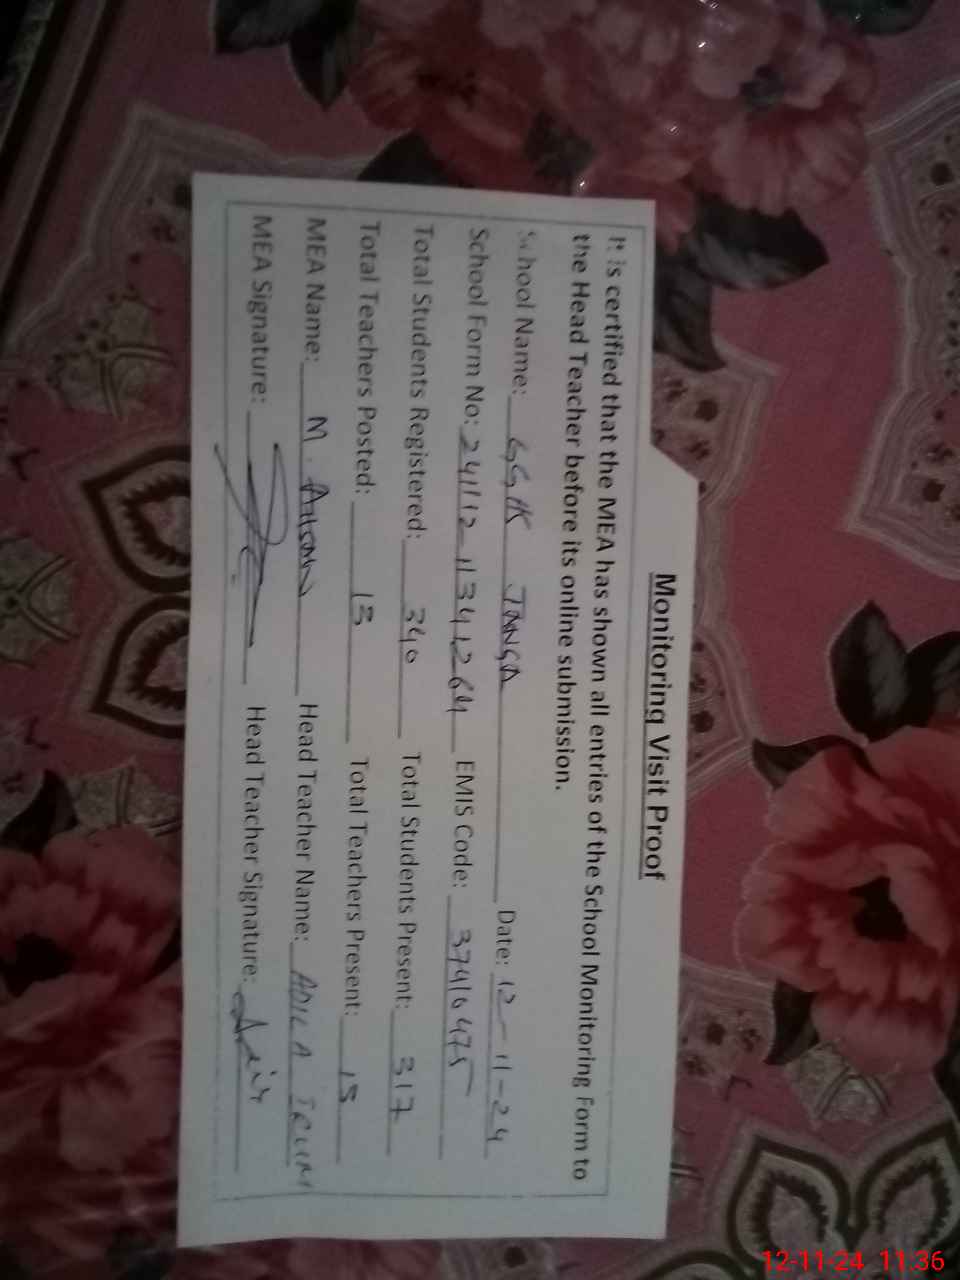 Monitoring Visit Proof
It is certified that the MEA has shown all entries of the School Monitoring Form to
the Head Teacher before its online submission.
School Name: GGHS JANGA Date: 12-11-24
School Form No: EMIS Code: 37410475
Total Students Registered: 340 Total Students Present: 317
Total Teachers Posted: 13 Total Teachers Present: 13
MEA Name: M. Ahsan Head Teacher Name: ADILA IRUM
MEA Signature: Head Teacher Signature:
12-11-24 11:36